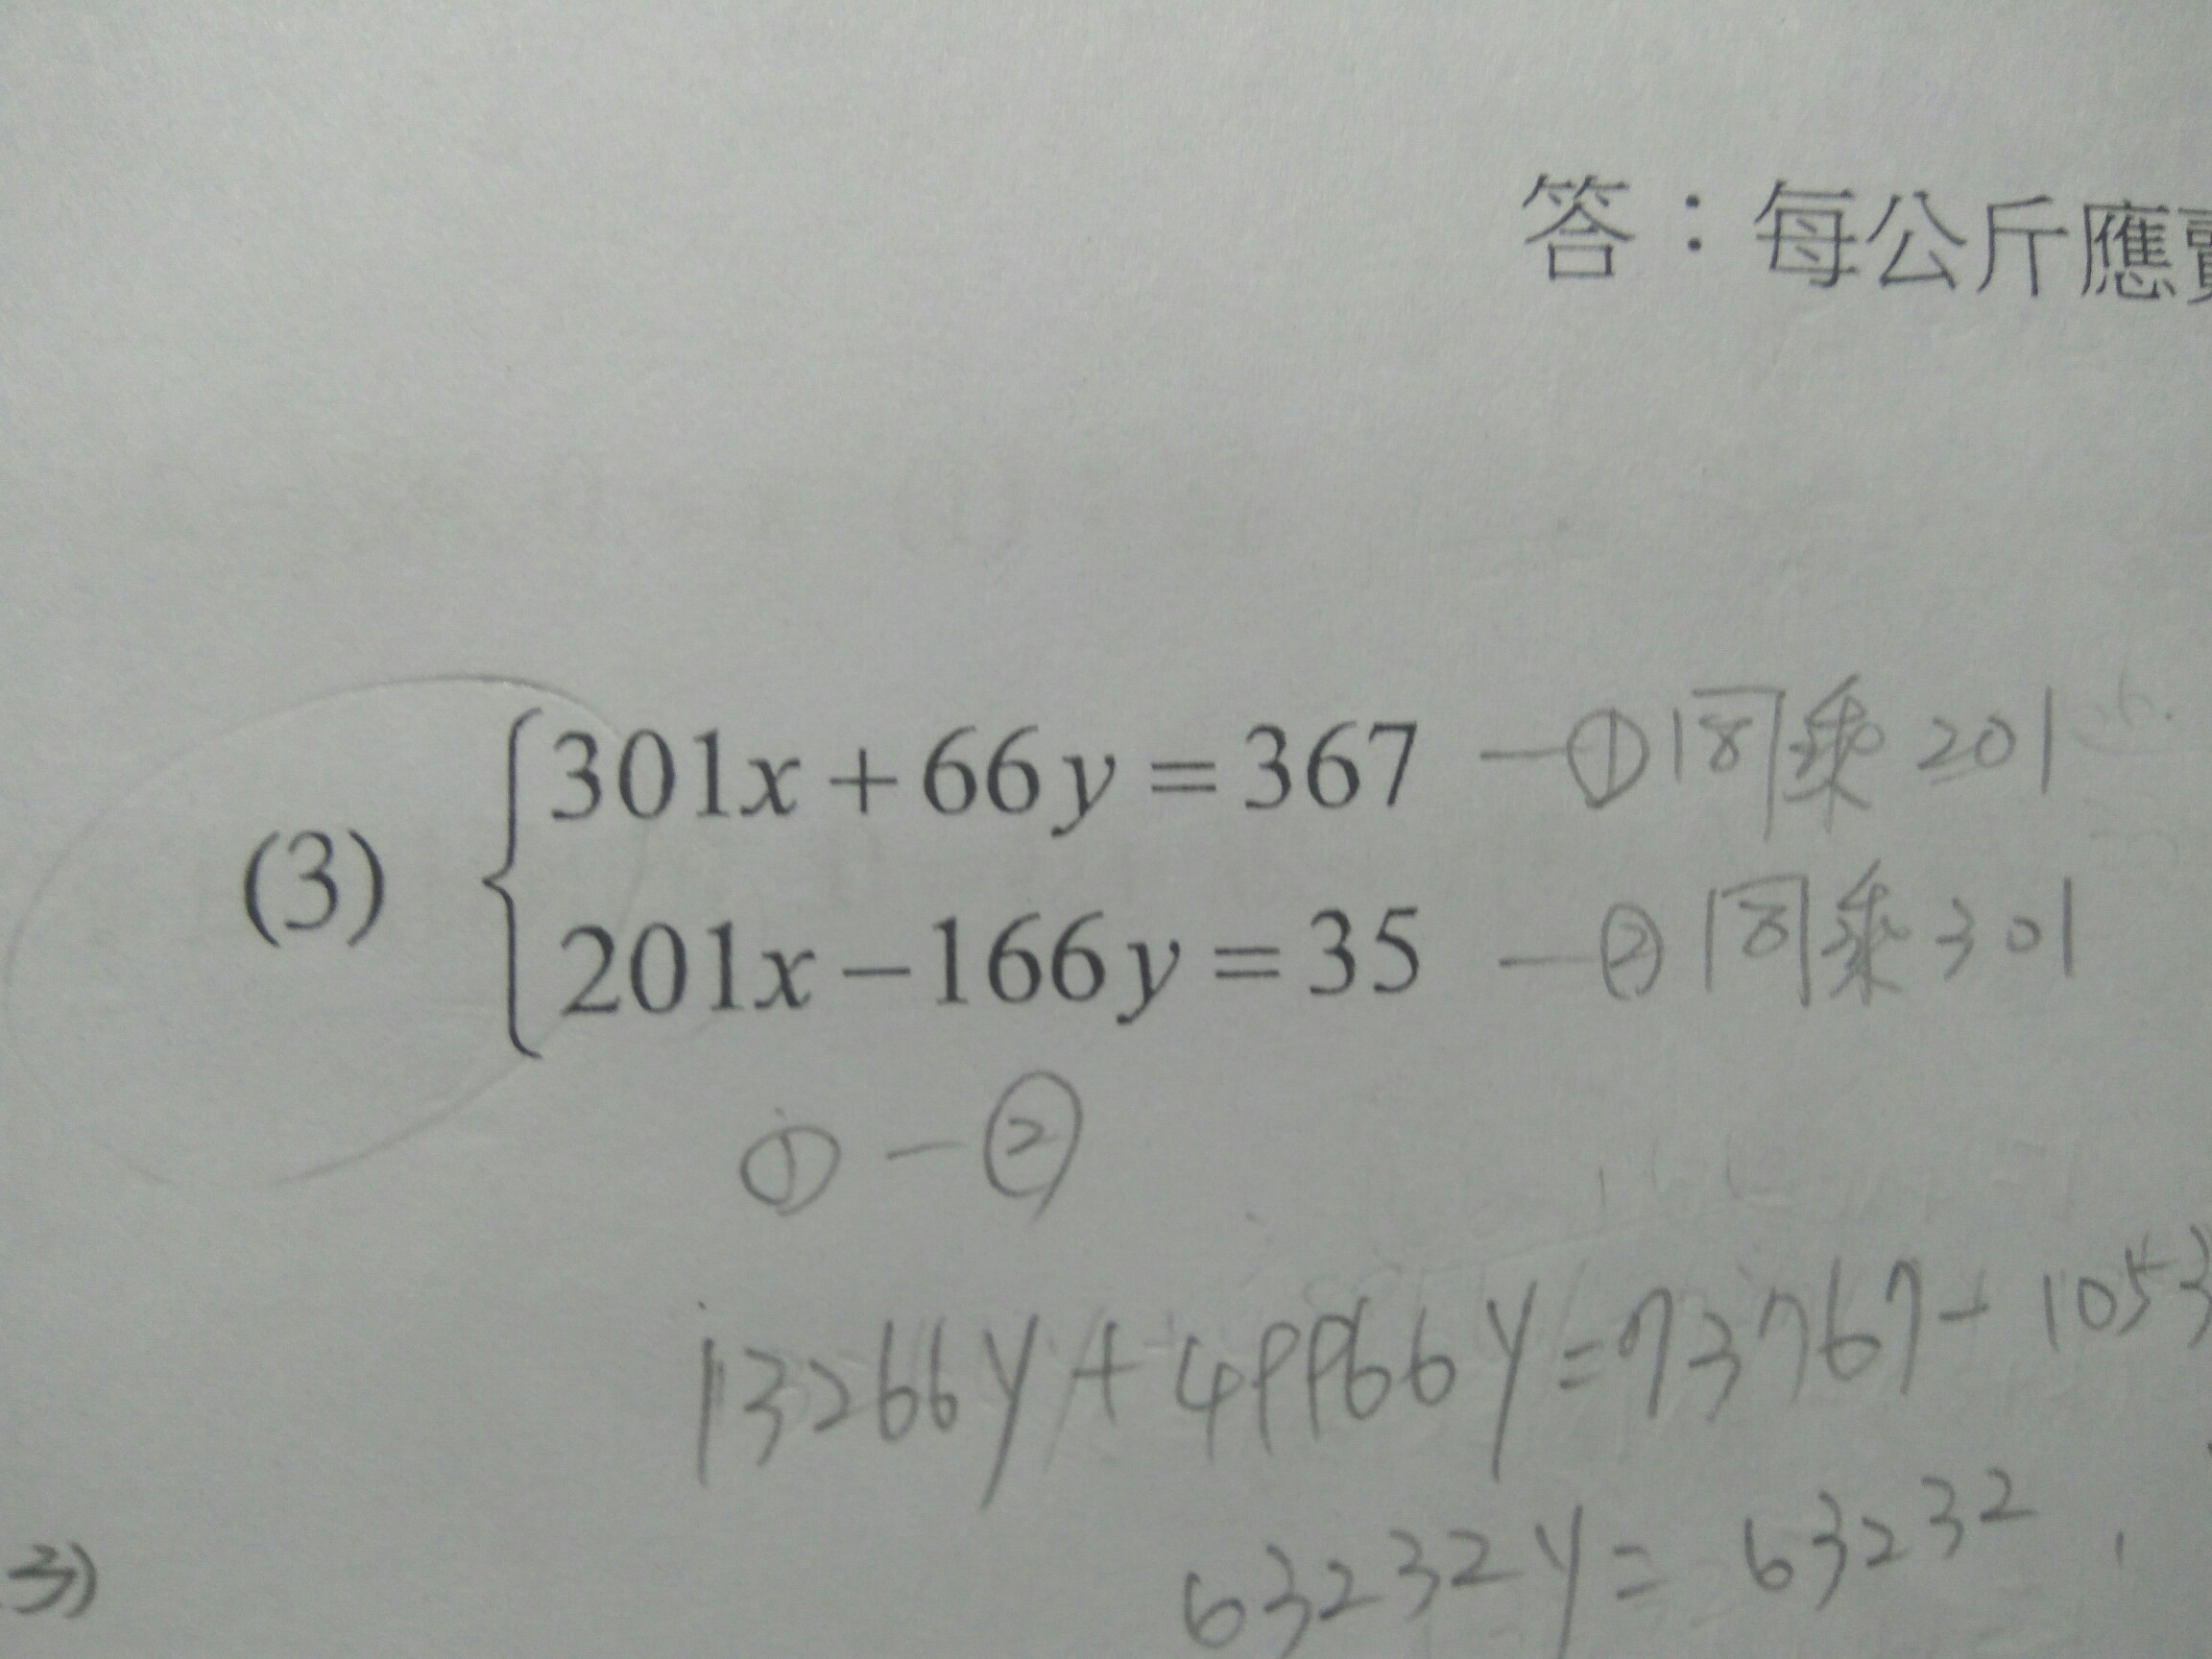 答：每公斤應賣
(3) 301x + 66y = 367 —① 同乘 201
201x − 166y = 35 —② 同乘 301
① — ②
13266y + 49966y = 73767 - 1053
63232y = 63232
3)